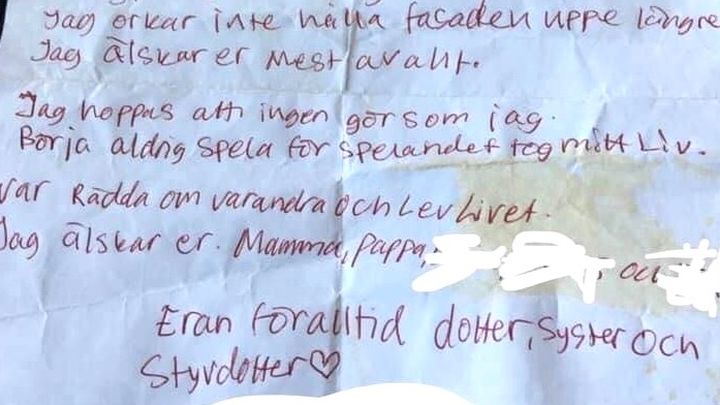 Jag orkar inte hålla fasaden uppe längre
Jag älskar er mest av allt.
Jag hoppas att ingen gör som jag.
Börja aldrig spela för spelandet tog mitt Liv.
var Rädda om varandra och Lev Livet.
Jag älskar er. Mamma, pappa,
och
Eran föralltid dotter, Syster och
Styvdotter♡